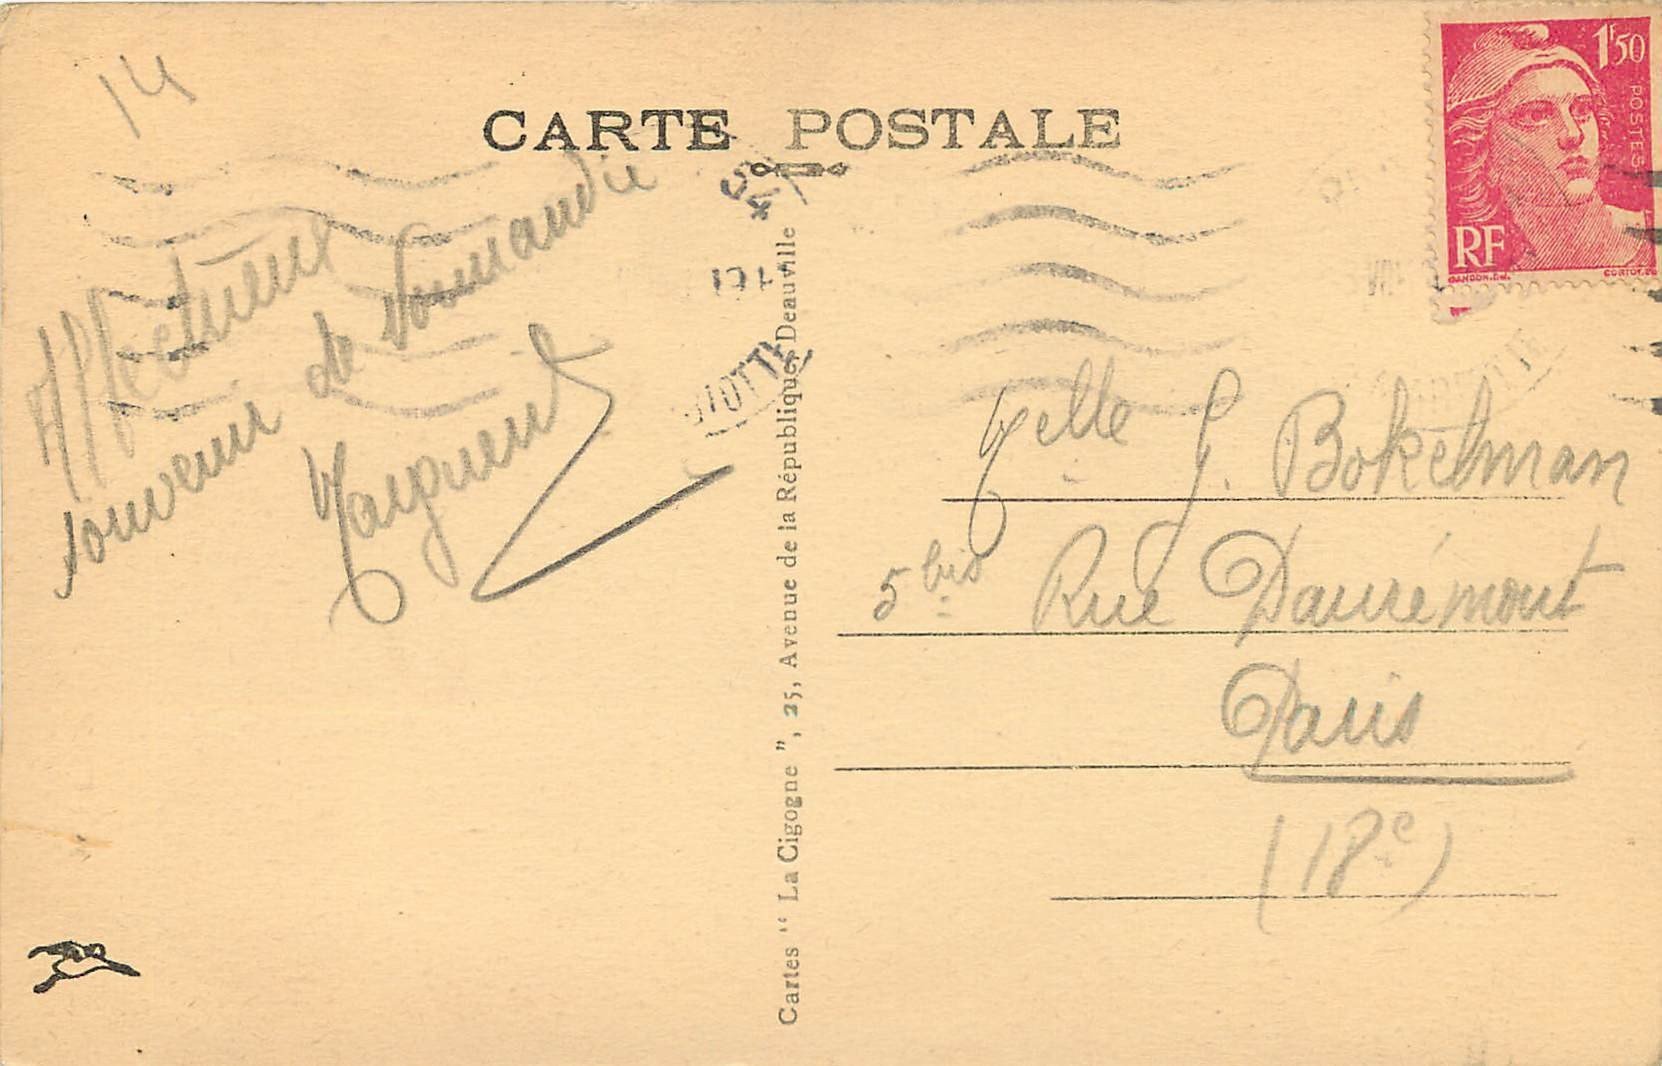 14
CARTE POSTALE
1F50
POSTES
RF
GANDON.DEL.
Affectueux
souvenir de Normandie
Cartes "La Cigogne", 25, Avenue de la République, Deauville
Melle G. Bokelman
5 bis Rue Daurémont
Paris
(18e)